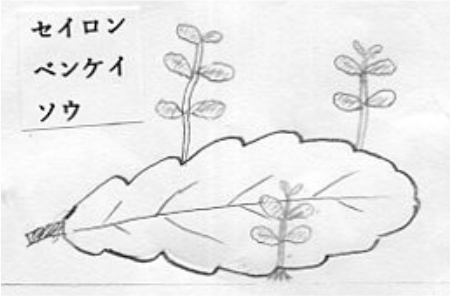 セイロン
ベンケイ
ソウ